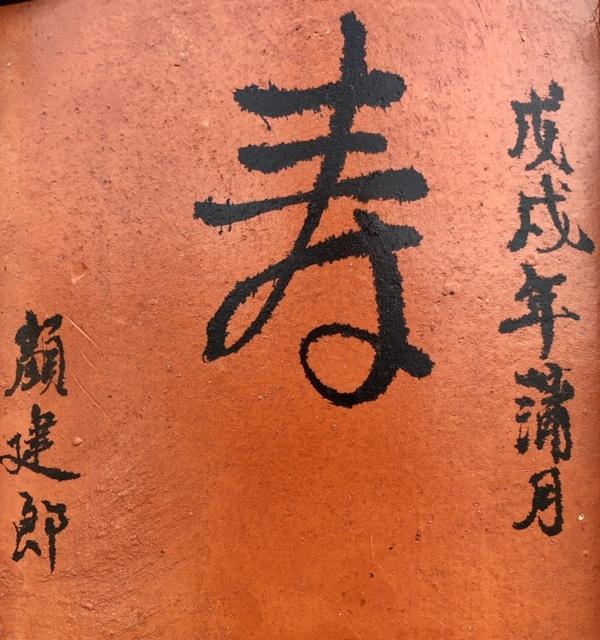 戊戌年蒲月
寿
顏建郎